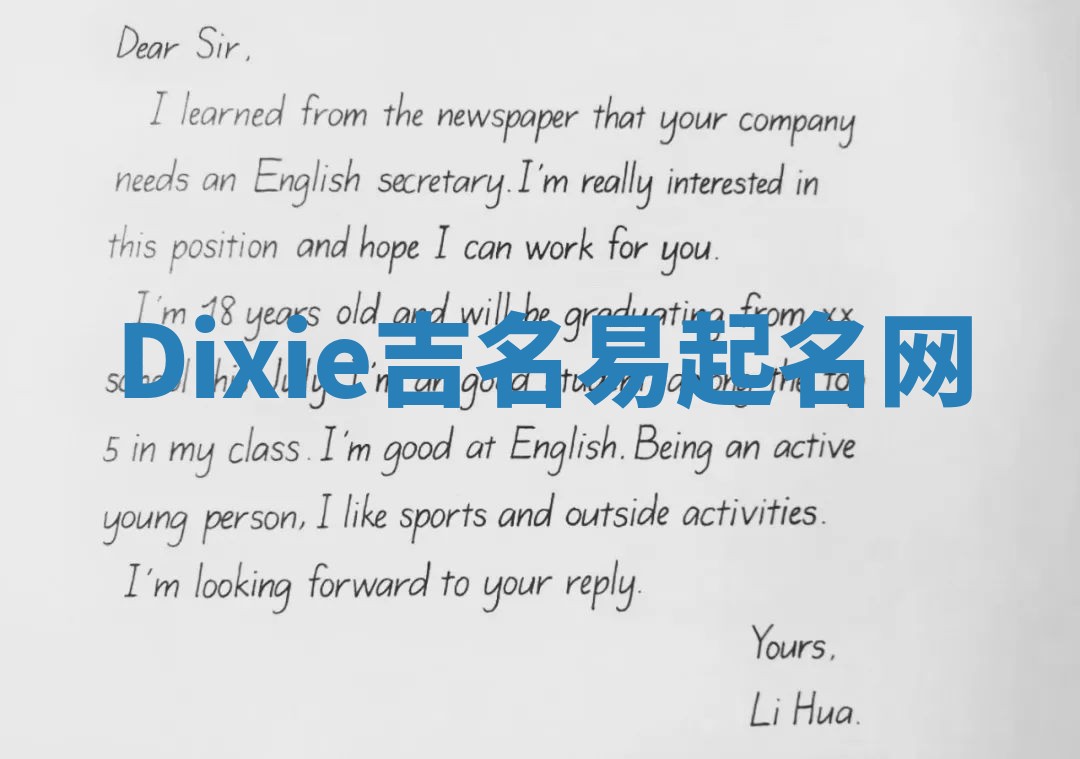 Dear Sir,
I learned from the newspaper that your company
needs an English secretary. I'm really interested in
this position and hope I can work for you.
I'm 18 years old and will be graduating from xx
Dixie吉名易起名网
school this July. I'm an good student among the top
5 in my class. I'm good at English. Being an active
young person, I like sports and outside activities.
I'm looking forward to your reply.
Yours,
Li Hua.